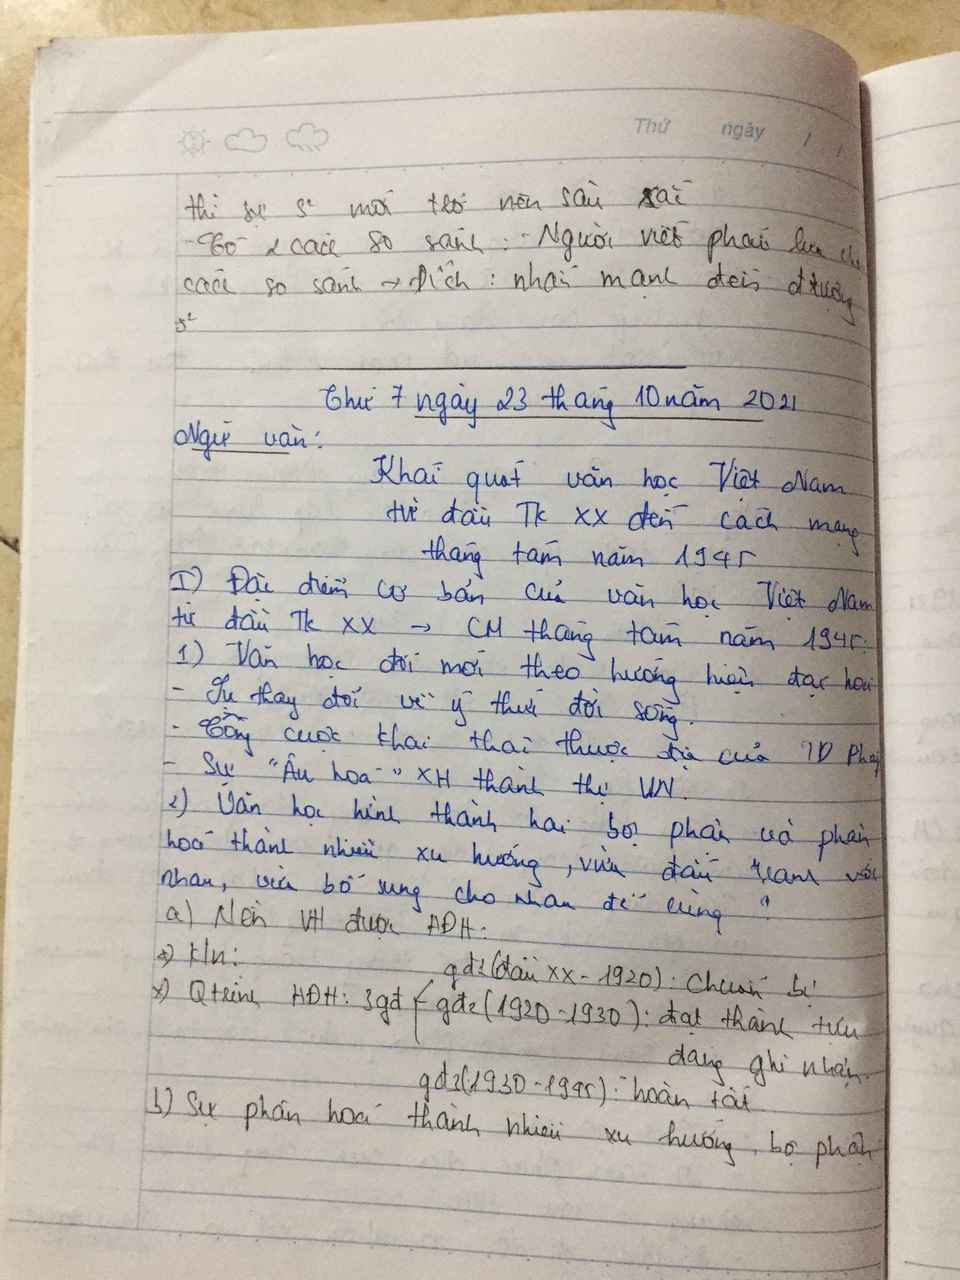 Thứ ngày / /
thì sự s² mới trở nên sâu sắc
- Có 2 cách so sánh : - Người viết phải lựa
cách so sánh → Đích : nhấn mạnh đến đ tượng
s²
Thứ 7 ngày 23 tháng 10 năm 2021
Ngữ văn :
Khái quát văn học Việt Nam
từ đầu TK XX đến cách mạng
tháng tám năm 1945
I) Đặc điểm cơ bản của văn học Việt Nam
từ đầu TK XX → CM tháng tám năm 1945:
1) Văn học đổi mới theo hướng hiện đại hoá
- Sự thay đổi về ý thức đời sống.
- Công cuộc khai thác thuộc địa của TD Pháp
- Sự "Âu hoá" XH thành thị VN.
2) Văn học hình thành hai bộ phận và phân
hoá thành nhiều xu hướng, vừa đấu tranh với
nhau, vừa bổ sung cho nhau để cùng
a) Nền VH được HĐH:
*) K/n:
gđ1(đầu XX - 1920): Chuẩn bị
*) Qtrình HĐH: 3gđ { gđ2(1920 - 1930): đạt thành tựu
đáng ghi nhận.
gđ3(1930 - 1945): hoàn tất
b) Sự phân hoá thành nhiều xu hướng, bộ phận